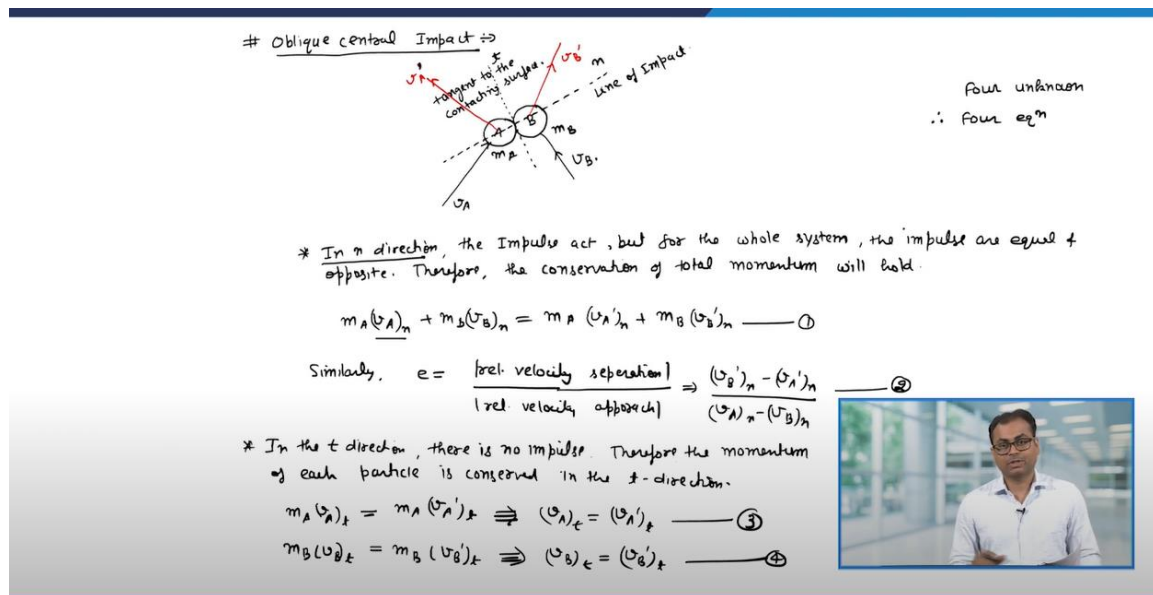 # Oblique central Impact ⇒
t
tangent to the
contacting surface.
vA'
vB'
n
Line of Impact.
A
B
mA
mB
vB.
vA
Four unknown
∴ Four eqn
* In n direction, the Impulse act, but for the whole system, the impulse are equal &
opposite. Therefore, the conservation of total momentum will hold.
mA(vA)n + mB(vB)n = mA (vA')n + mB (vB')n —— ①
Similarly, e = |rel. velocity seperation| / |rel. velocity approach| ⇒ (vB')n - (vA')n / (vA)n - (vB)n —— ②
* In the t direction, there is no impulse. Therefore the momentum
of each particle is conserved in the t-direction.
mA(vA)t = mA(vA')t ⇒ (vA)t = (vA')t —— ③
mB(vB)t = mB(vB')t ⇒ (vB)t = (vB')t —— ④